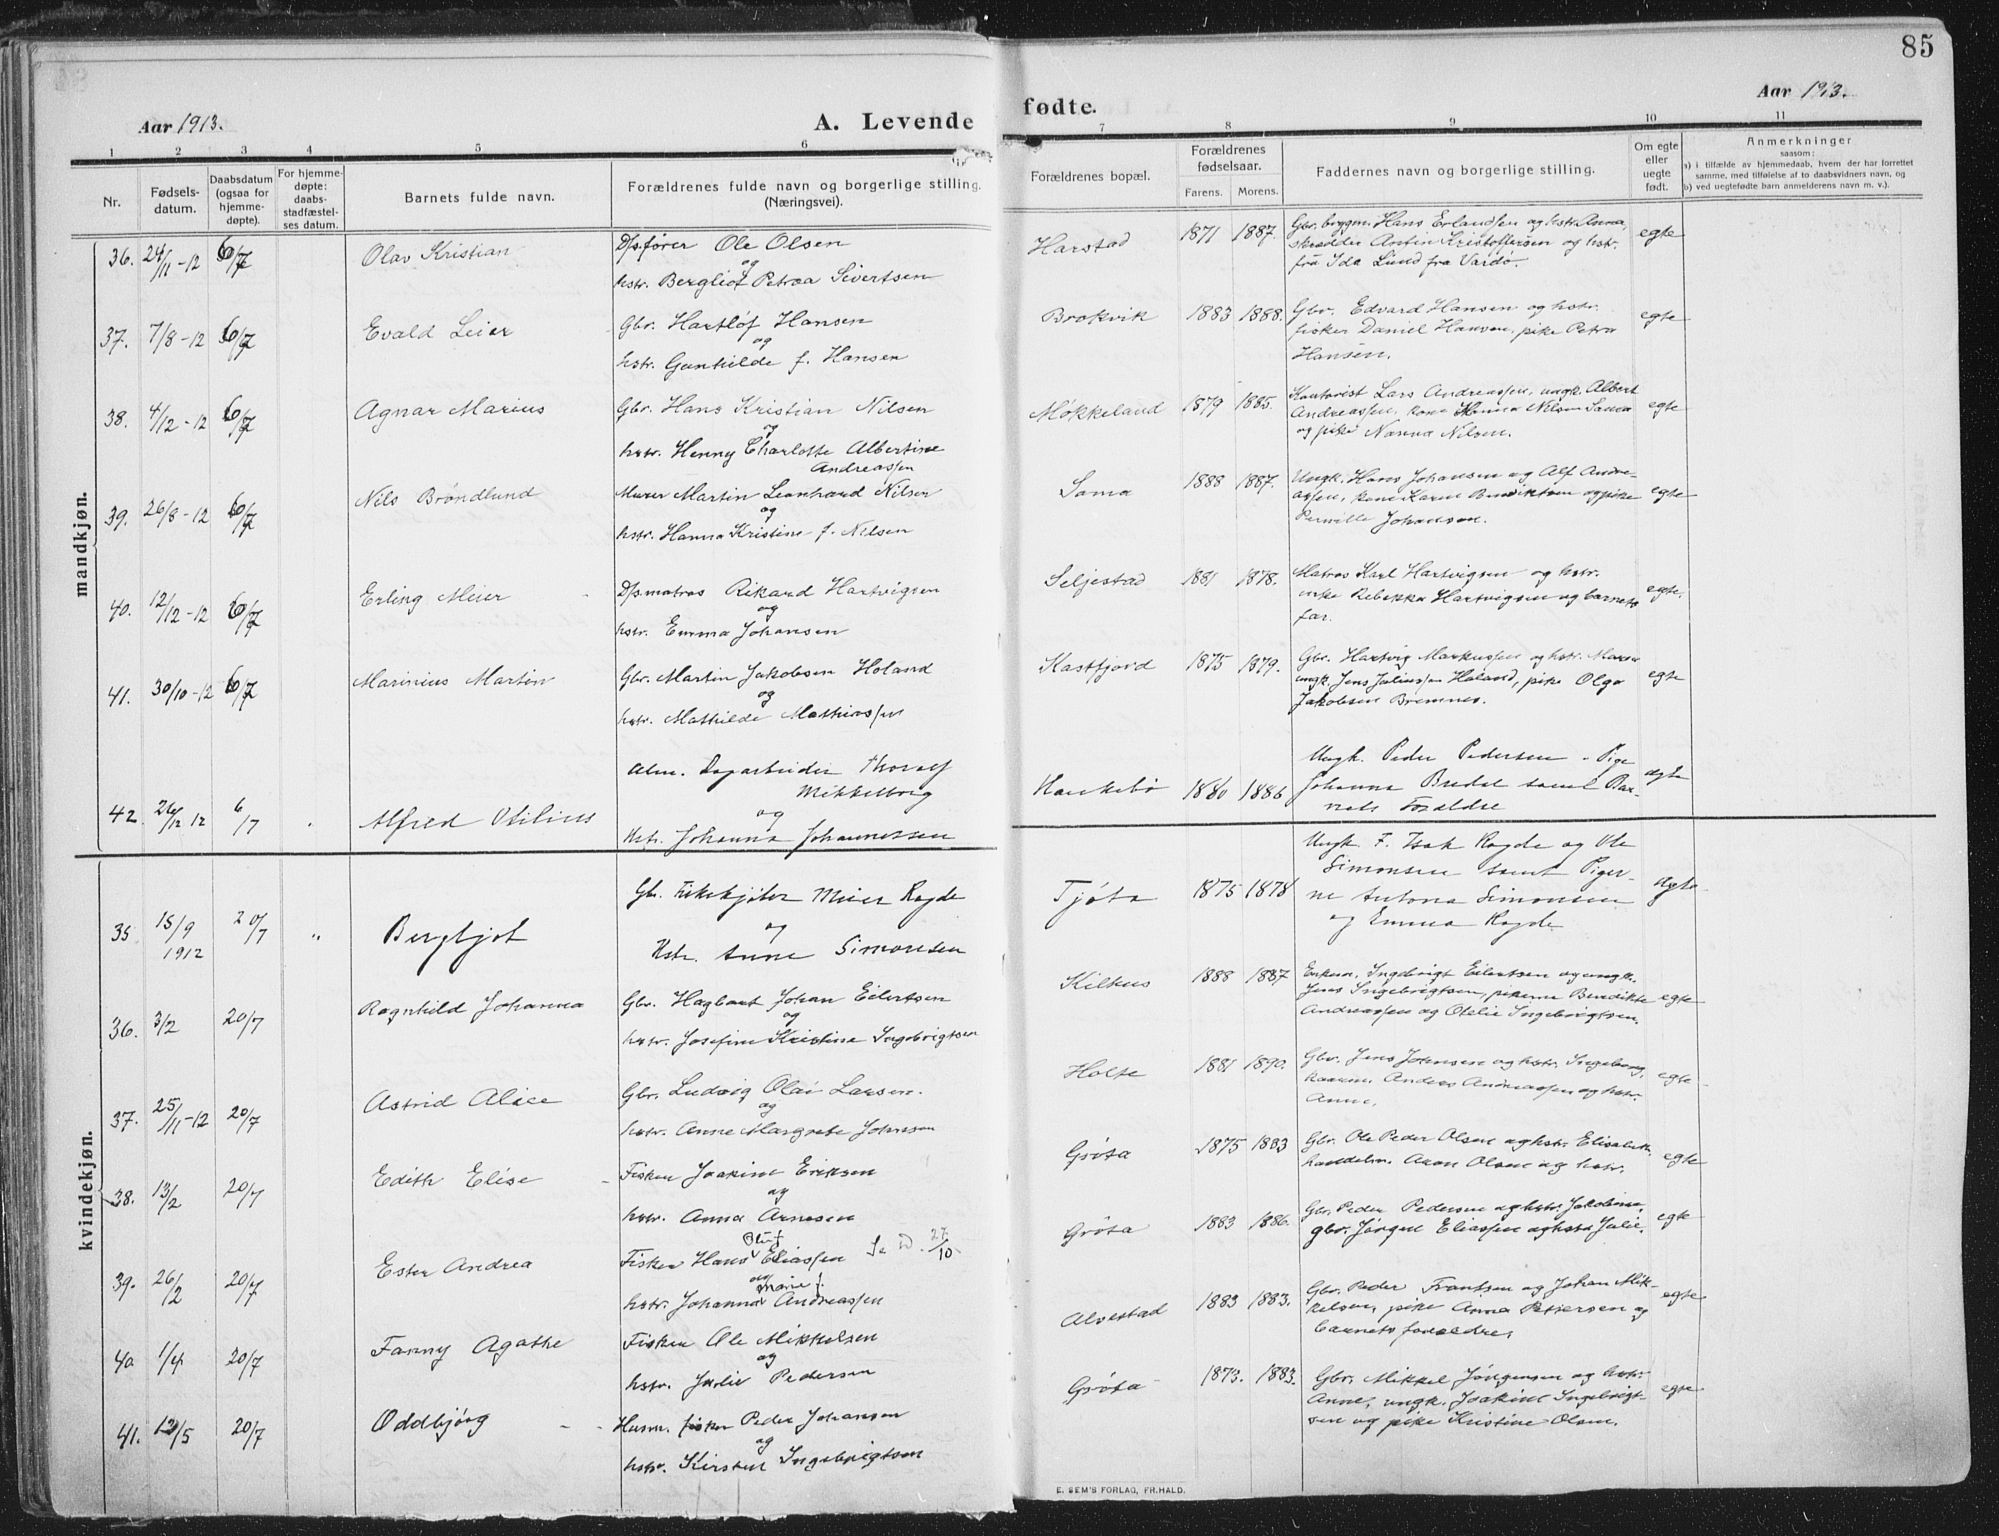 85
Aar 1913.
A. Levende
fødte.
Aar 1913.
1 2 3 4 5 6 7 8 9 10 11
Nr.
Fødsels-
datum.
Daabsdatum
(ogsaa for
hjemme-
døpte).
For hjemme-
døpte:
daabs-
stadfæstel-
ses datum.
Barnets fulde navn.
Forældrenes fulde navn og borgerlige stilling.
(Næringsvei).
Forældrenes bopæl.
Forældrenes
fødselsaar.
Farens. Morens.
Faddernes navn og borgerlige stilling.
Om egte
eller
uegte
født.
Anmerkninger
saasom:
a) i tilfælde av hjemmedaab, hvem der har forrettet
samme, med tilføielse af to daabsvidners navn, og
b) ved uegtefødte barn anmelderens navn m. v.).
mandkjøn.
36. 24/11-12 6/7 Olav Kristian
D/s.fører Ole Olsen
og
hstr. Bergliot Petrea Sivertsen
Harstad 1871 1887.
Gbr. brygm. Hans Erlandsen og hstr. Anna,
skrædder Antin Kristoffersen og hstr.
frü Ida Lünd fra Vardø.
egte
37. 7/8-12 6/7 Evald Leier
Gbr. Hartlof Hansen
og
hstr. Gunhilde f. Hansen
Brokvik 1883 1888.
Gbr. Edvard Hansen og hstr.
fisker Daniel Hansen, pike Petra
Hansen.
egte
38. 4/12-12 6/7 Agnar Marius
Gbr. Hans Kristian Nilsen
og
hstr. Henny Charlotte Albertine
Andreassen
Møkkeland 1879 1885.
Lars Andreassen, ungk. Albert
Andreassen, kone Hanna Nilsen Sama
og pike Nanna Nilsen.
egte
39. 26/8-12 6/7 Nils Brøndlund
Murer Martin Leonhard Nilsen
og
hstr. Hanna Kristine f. Nilsen
Sama 1888 1887.
Ungk. Hans Johansen og Alf Andre-
assen, kone Karen Benediktsen og pike
Pernille Johansen.
egte
40. 12/12-12 6/7 Erling Meier
D/s.matros Rikard Hartvigsen
og
hstr. Emma Johansen
Seljestad 1881 1878.
Matros Karl Hartvigsen og hstr.
enke Rebekka Hartvigsen og barnets
far.
egte.
41. 30/10-12 6/7 Marinius Martin
Gbr. Martin Jakobsen Holand
og
hstr. Mathilde Mathiassen
Kastfjord 1875 1879.
Gbr. Hartvig Markussen og hstr. Marsa
ungk. Jens Juliussen Holand, pike Olga
Jakobsen Bremnes.
egte
42. 26/12 12 6/7 " Alfred Otilius
Alm. Dagarbeider Thoralf
Mikkelborg
og
Hstr. Johanna Johannessen
Haukebø 1880 1886
Ungk. Peder Pedersen - Pige
Johanna Bredal samt Bar-
nets Forældre
ægte
kvindekjøn.
35 15/9 1912 20/7 " Bergljot
Gb. Fiskekjøber Meier Rogde
og
Hstr. Anne Simonsen
Tjøta 1875 1878
Ungk. F. Isak Rogde og Ole
Simonsen samt Piger-
ne Antona Simonsen
og Emma Rogde
ægte
36. 3/2 20/7 Ragnhild Johanna
Gbr. Hagbart Johan Eilertsen
og
hstr. Josefine Kristine Ingebrigtsen
Kilhus 1888 1887
Enkem. Ingebrigt Eilertsen og ungk.
Jens Ingebrigtsen, pikerne Benedikte
Andreassen og Otelie Ingebrigtsen.
egte
37. 25/11-12 20/7 Astrid Alice
Gbr. Ludvig Olai Larsen.
og
hstr. Anne Margrete Johnsen
Holte 1881 1890.
Gbr. Jens Johnsen og hstr. Ingeborg,
kaarm. Anders Andreassen og hstr.
Anne.
egte
38. 13/2 20/7 Edith Elise
Fisker Joakim Eriksen
og
hstr. Anna Arnesen
Grøta 1875 1883
Gbr. Ole Peder Olsen og hstr. Elisabeth
handelsm. Aron Olsen og hstr.
egte
39. 26/2 20/7 Ester Andrea
Fisker Hans Eliassen Se D. 27/10.
og
Marie f.
hstr. Johanna Andreassen
Grøta 1883 1886.
Gbr. Peder Pedersen og hstr. Jakobine,
gbr. Jørgen Eliassen og hstr Julie.
egte
40 1/4 20/7 Fanny Agathe
Fisker Ole Mikkelsen
og
hstr. Julie Pedersen
Alvestad 1883 1883.
Gbr. Peder Frantsen og Johan Mik-
kelsen, pike Anna Pettersen og
barnets forældre,
egte
41. 13/5 20/7 Oddbjørg
Husm. fisker Peder Johansen
og
hstr. Kirsten Ingebrigtsen
Grøta 1873. 1883.
Gbr. Mikkel Jørgensen og hstr.
Anne, ungk. Joakim Ingebrigt-
sen og pike Kristine Olsen.
egte
E. SEM'S FORLAG, FR.HALD.